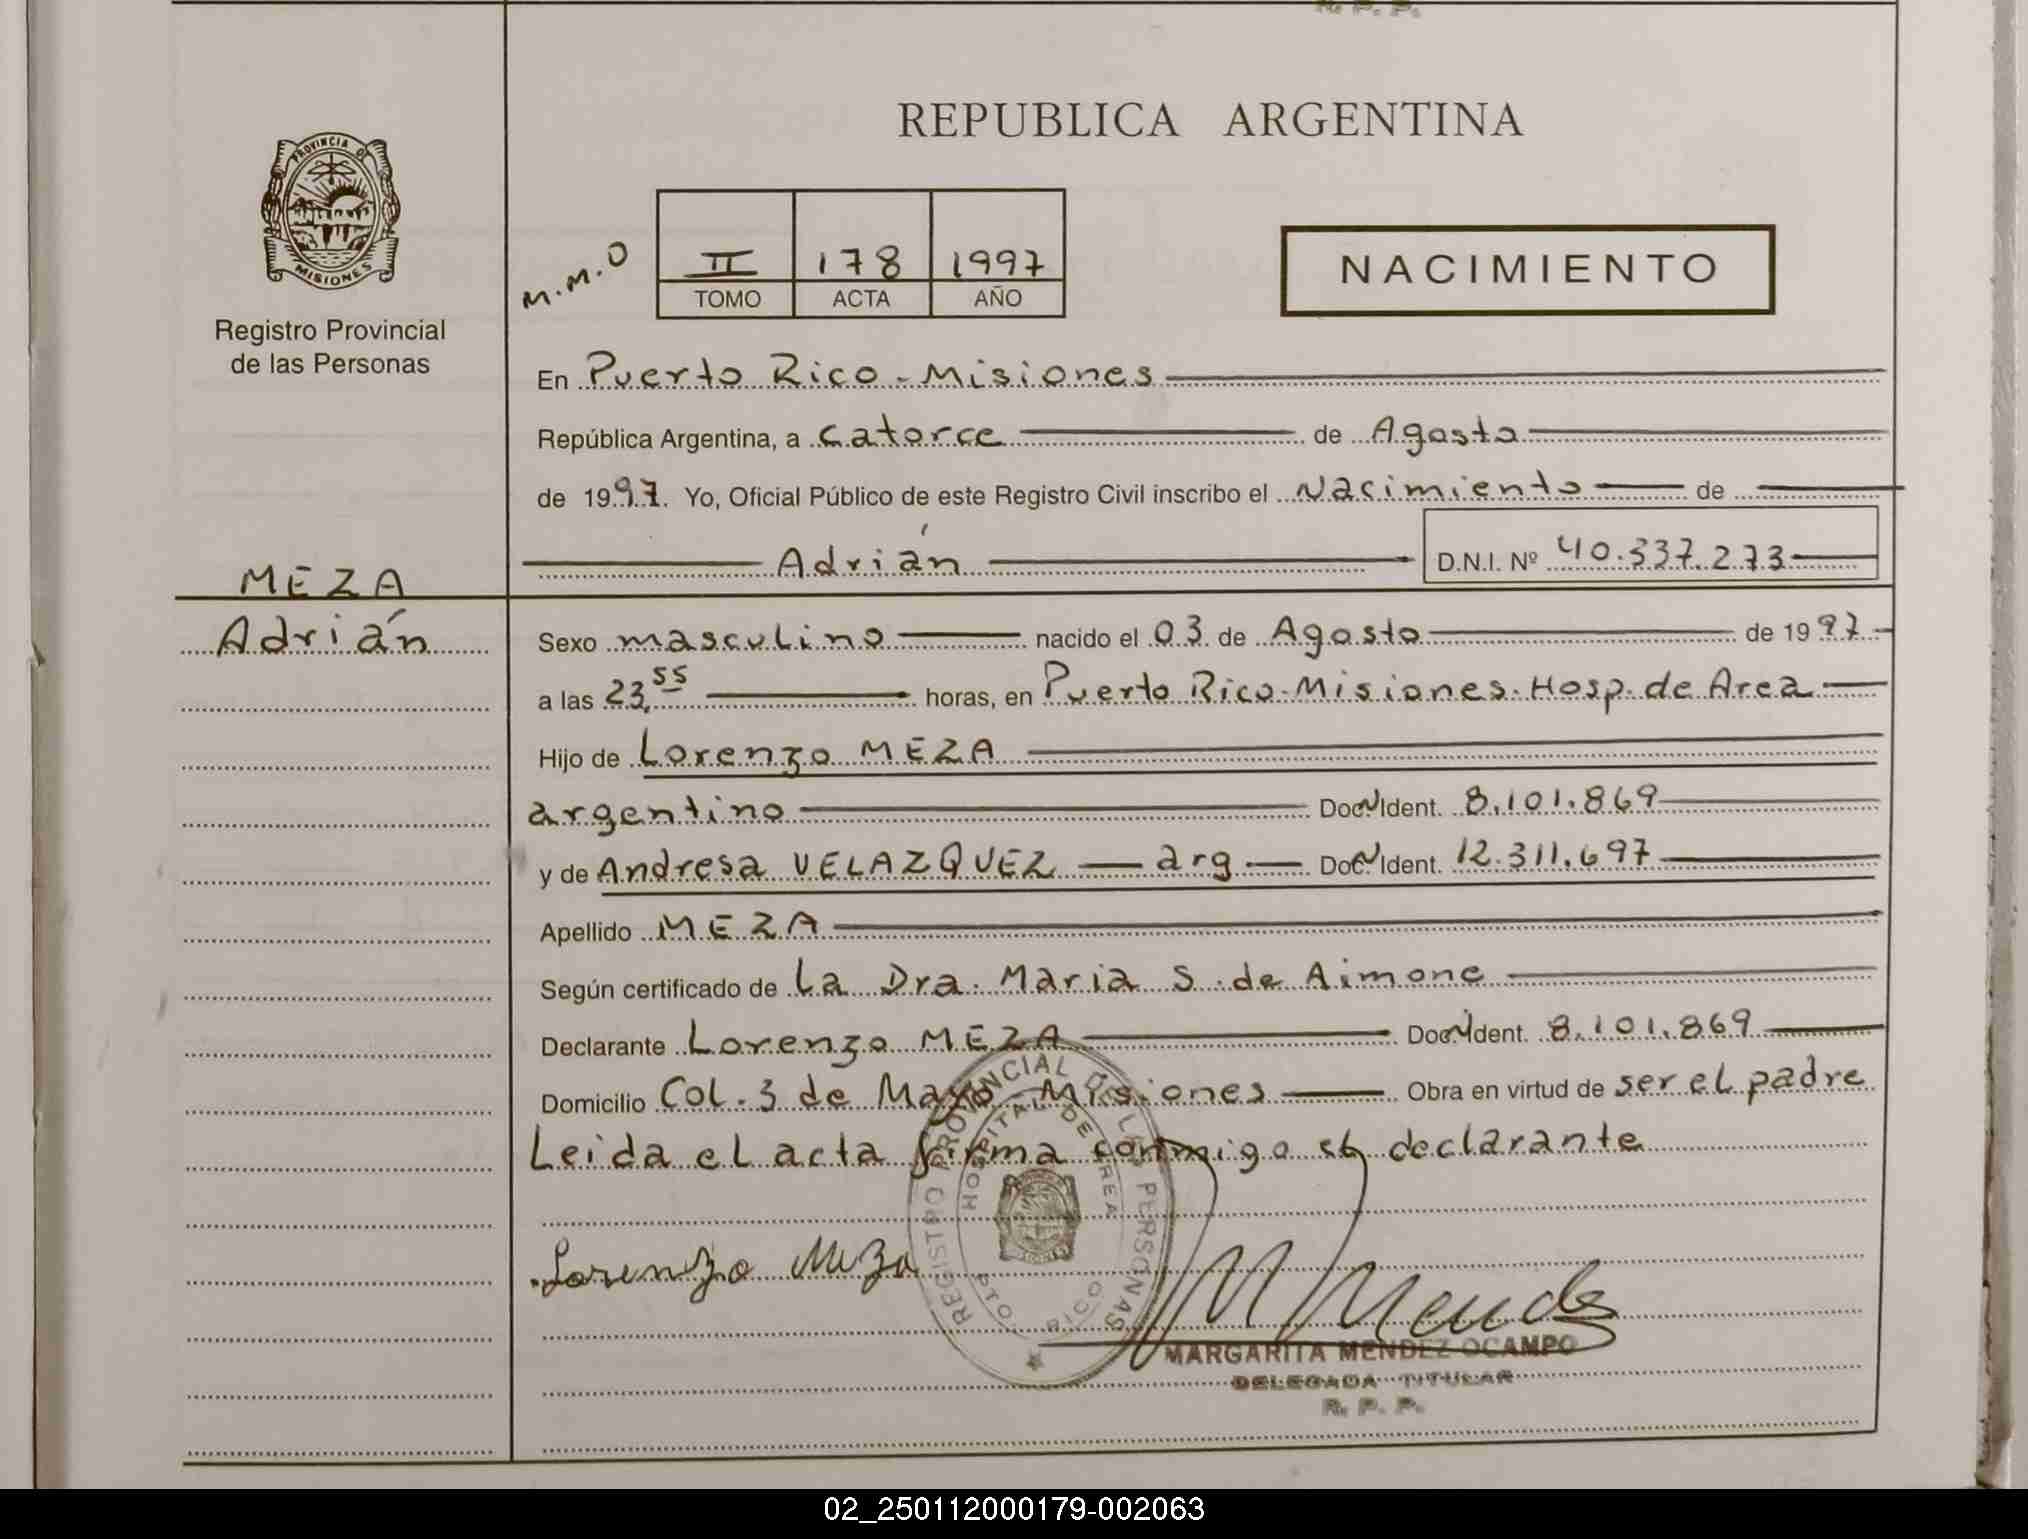 R. P. P.
REPUBLICA ARGENTINA
PROVINCIA DE
MISIONES
Registro Provincial
de las Personas
M.M.O
II 178 1997
TOMO ACTA AÑO
NACIMIENTO
En Puerto Rico - Misiones
República Argentina, a catorce de Agosto
de 1997. Yo, Oficial Público de este Registro Civil inscribo el Nacimiento de
Adrián D.N.I. Nº 40.337.273
MEZA
Adrián
Sexo masculino nacido el 03 de Agosto de 1997
a las 23,55 horas, en Puerto Rico-Misiones-Hosp. de Area
Hijo de Lorenzo MEZA
argentino Doc. Ident. 8.101.869
y de Andresa VELAZQUEZ — arg — Doc. Ident. 12.311.697
Apellido MEZA
Según certificado de La Dra. Maria S. de Aimone
Declarante Lorenzo MEZA Doc. Ident. 8.101.869
Domicilio Col. 3 de Mayo - Misiones Obra en virtud de ser el padre
Leida el acta firma conmigo el declarante
REGISTRO PROVINCIAL DE LAS PERSONAS
HOSPITAL DE AREA
PTO. RICO
Lorenzo Meza
M Mendez
MARGARITA MENDEZ OCAMPO
DELEGADA TITULAR
R. P. P.
02_250112000179-002063